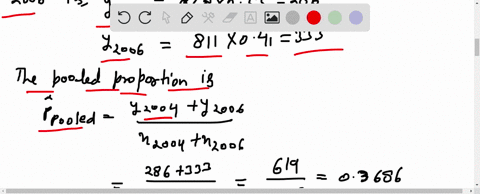 2006
y2006 = 811 X 0.41 = 333
The pooled proportion is
p̂pooled = y2004 + y2006
n2004 + n2006
= 286 + 333 = 619 = 0.3686